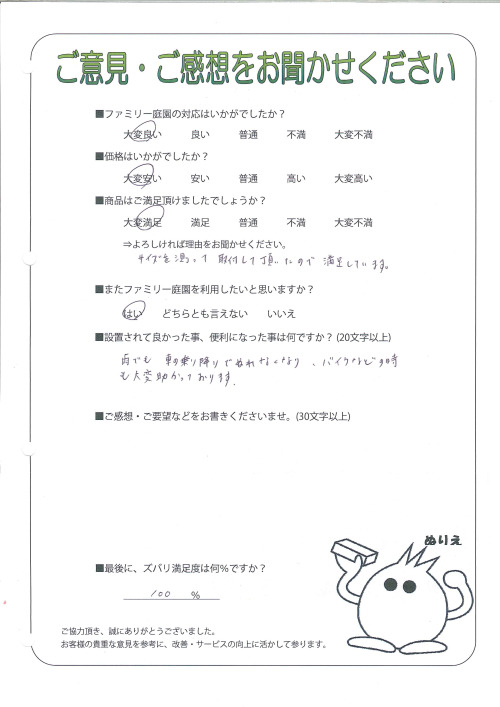 ご意見・ご感想をお聞かせください
■ファミリー庭園の対応はいかがでしたか？
大変良い 良い 普通 不満 大変不満
■価格はいかがでしたか？
大変安い 安い 普通 高い 大変高い
■商品はご満足頂けましたでしょうか？
大変満足 満足 普通 不満 大変不満
⇒よろしければ理由をお聞かせください。
サイズを測って取付して頂いたので満足しています。
■またファミリー庭園を利用したいと思いますか？
はい どちらとも言えない いいえ
■設置されて良かった事、便利になった事は何ですか？(20文字以上)
雨でも車の乗り降りでぬれなくなり、バイクなどの時
も大変助かっております.
■ご感想・ご要望などをお書きくださいませ。(30文字以上)
ぬりえ
■最後に、ズバリ満足度は何%ですか？
100 %
ご協力頂き、誠にありがとうございました。
お客様の貴重な意見を参考に、改善・サービスの向上に活かして参ります。